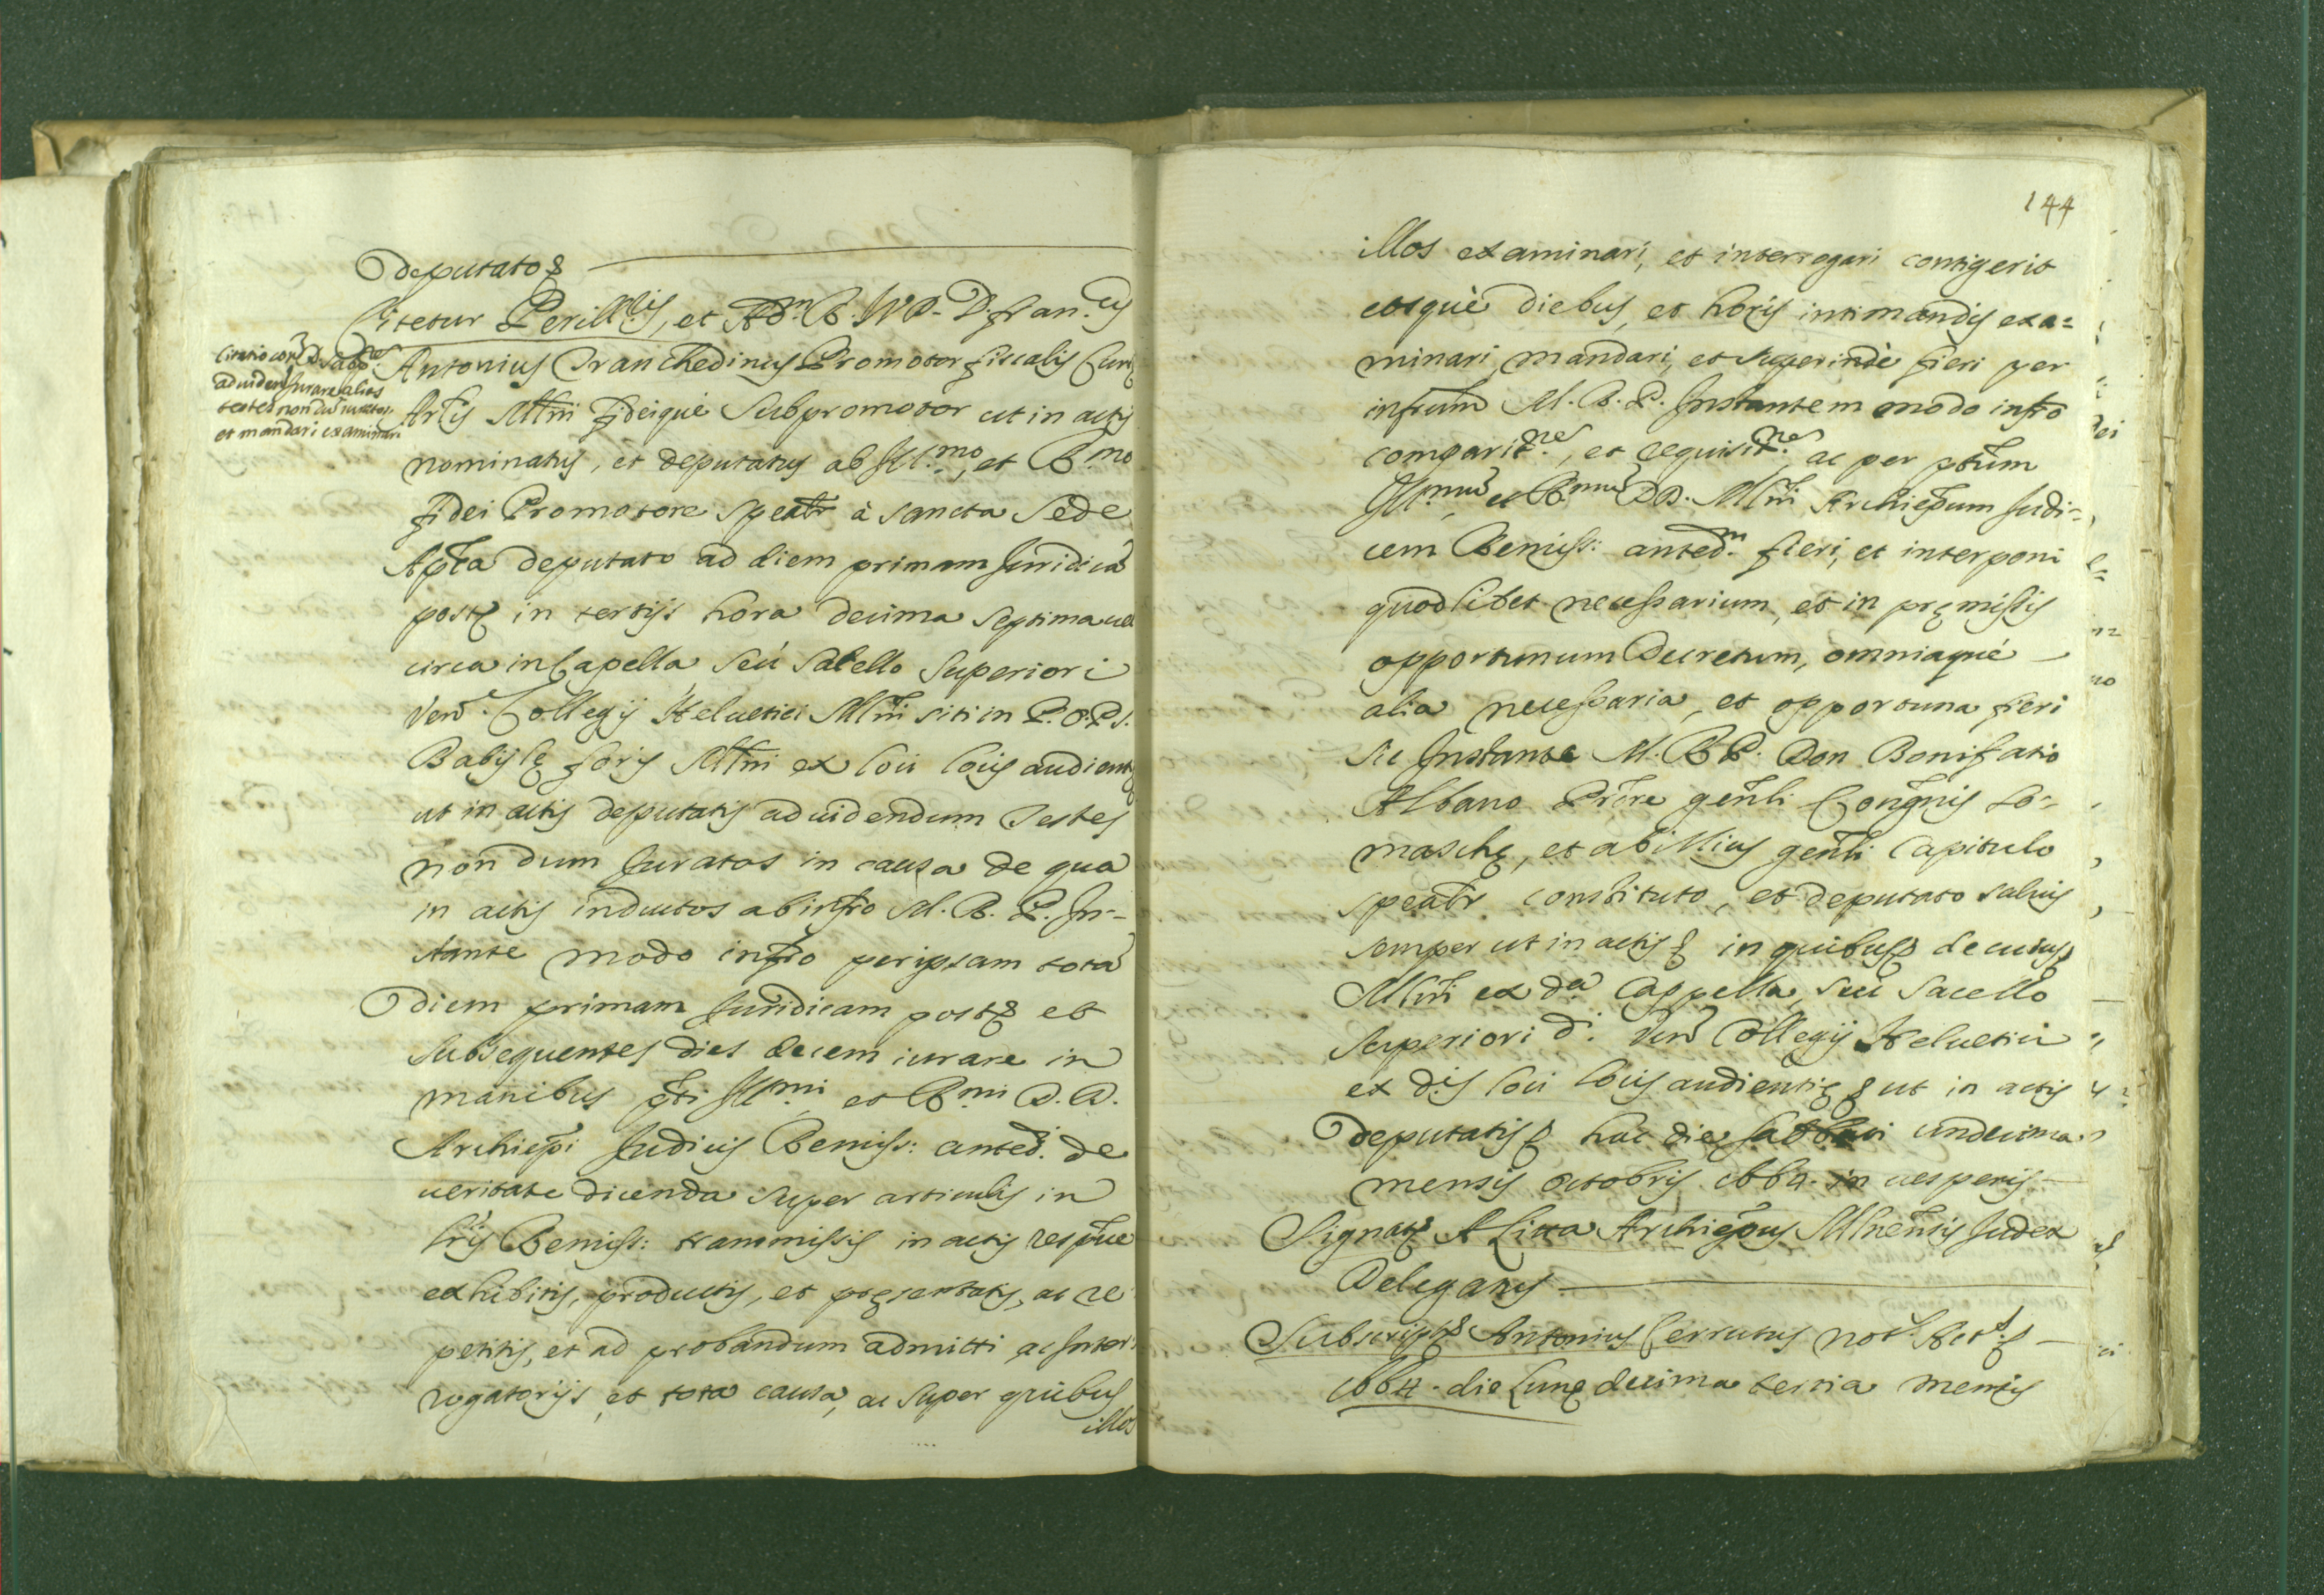 deputatos
Citetur Perill.is, et Ad.m R. D. Fran.cus
Antonius Tranchedinus Promotor fiscalis Curię
Arlis Mlni fideique Subpromotor ut in actis
nominatus, et deputatus ab Ill.mo, et R.mo
fidei Promotore speatr à sancta Sede
Aplca deputato ad diem primam Juridicã
postę in tertijs hora decima septima uel
circa in Capella seù sacello superiori
Venᵈ. Collegij Heluetici Mlni siti in P.O.P.S.
Babilę foris Mlni ex loci locis audientię
ut in actis deputatis ad uidendum Testes
non dum Juratos in causa de qua
in actis inductos ab infro M. R. P. In-
stante modo infro per ipsam totã
diem primam Juridicam post et
subsequentes dies decem iurare in
manibus pti Ill.mi, et R.mi D. D.
Archiepi Judicis Remiss: anted. de
ueritate dicenda super articulis in
lris Remiss: transmissis in actis respue
exhibitis, productis, et pręsentatis, ac re
petitis, et ad probandum admitti ac Inter
rogatorijs, et tota causa, ac super quibus
illos
ad uidendũ Jurare alios
testes non dũ iuratos
et mandari examinari
144
illos examinari, et interrogari contigerit
eosquè diebus, et horis intimandis exa=
minari, mandari, et superindè fieri per
infrum M. R. P. Instantem modo infro
comparit.nes, et requisit.nes ac per ptum
Ill.mũ et R.mũ DD. Mlni Archiepum Judi=
cem Remiss: anted.m fieri, et interponi
quodlibet necessarium, et in pręmissis
opportunum Decretum, omniaquè
alia necessaria, et opportuna fieri
sic Instante M. R. P. Don Bonifatio
Albano Prore genli Congnis So=
maschę, et ab illius genli Capitulo
speatr constituto, et deputato saluis
semper ut in actis in quibus de cuius
Mlni ex dã Cappella, seù sacello
superiori d. Venᵈ Collegij Heluetici
ex dis loci locis audientię ut in actis
deputatis hac die sabbati undecima
mensis octobris 1664. in uesperis
Signatę A Litta Archiepus Mlnensis Judex
Delegatus
Subscript Antonius Cerrutus not.s Act.
1664. die Lunę decima tertia mensis